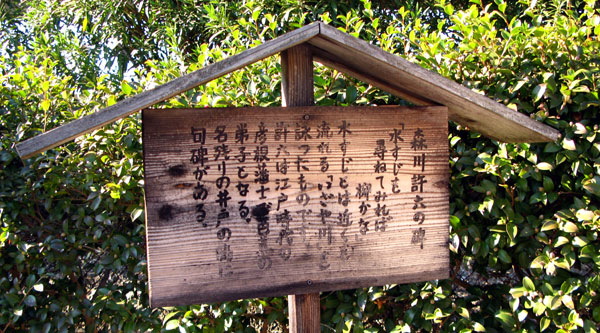 森川許六の碑
「水すじを
尋ねてみれば
柳かな
水すじとは近くを
流れる「いさや川」を
詠ったもので
許六は江戸時代の
彦根藩士で芭蕉の
弟子となる。
名残りの井戸の
句碑がある。